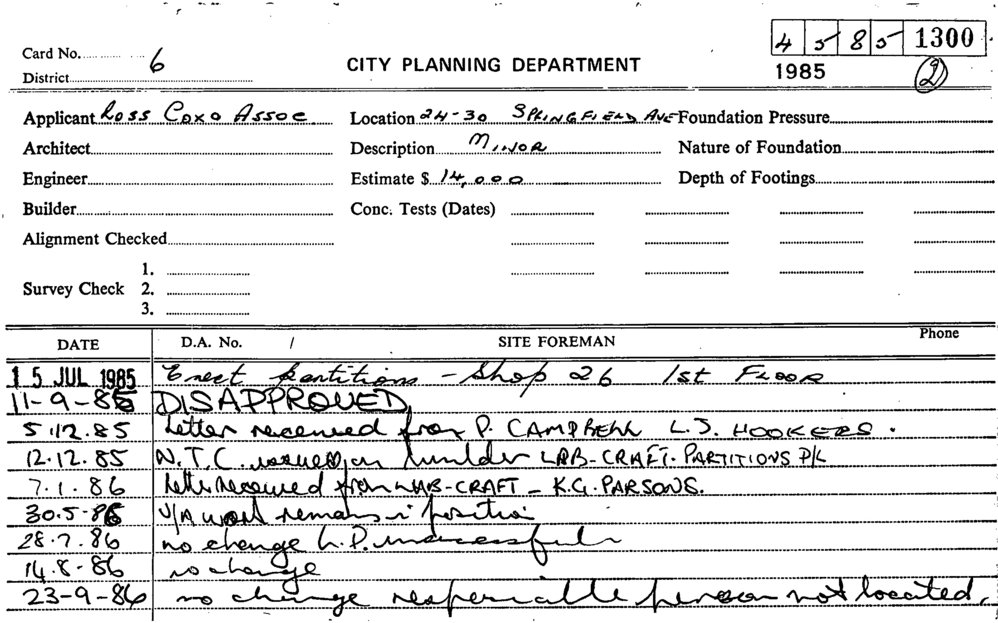 4 5 8 5 1300
Card No. 6
CITY PLANNING DEPARTMENT
1985
2
District
Applicant Ross Coxo Assoc Location 24-30 SPRINGFIELD AVE Foundation Pressure
Architect Description MINOR Nature of Foundation
Engineer Estimate $ 14,000 Depth of Footings
Builder Conc. Tests (Dates)
Alignment Checked
1.
Survey Check 2.
3.
DATE D.A. No. / SITE FOREMAN Phone
15 JUL 1985 Erect partitions - Shop 26 1st FLOOR
11-9-85 DISAPPROVED
5.12.85 Letter received from P. CAMPBELL L.J. HOOKERS.
12.12.85 N.T.C. issued on builder LAB-CRAFT. PARTITIONS P/L
7.1.86 Letter received from LAB-CRAFT - K.G. PARSONS.
30.5.86 U/A work remains in position
28.7.86 no change L.P. unsuccessful
14.8-86 no change
23-9-86 no change responsible person not located.